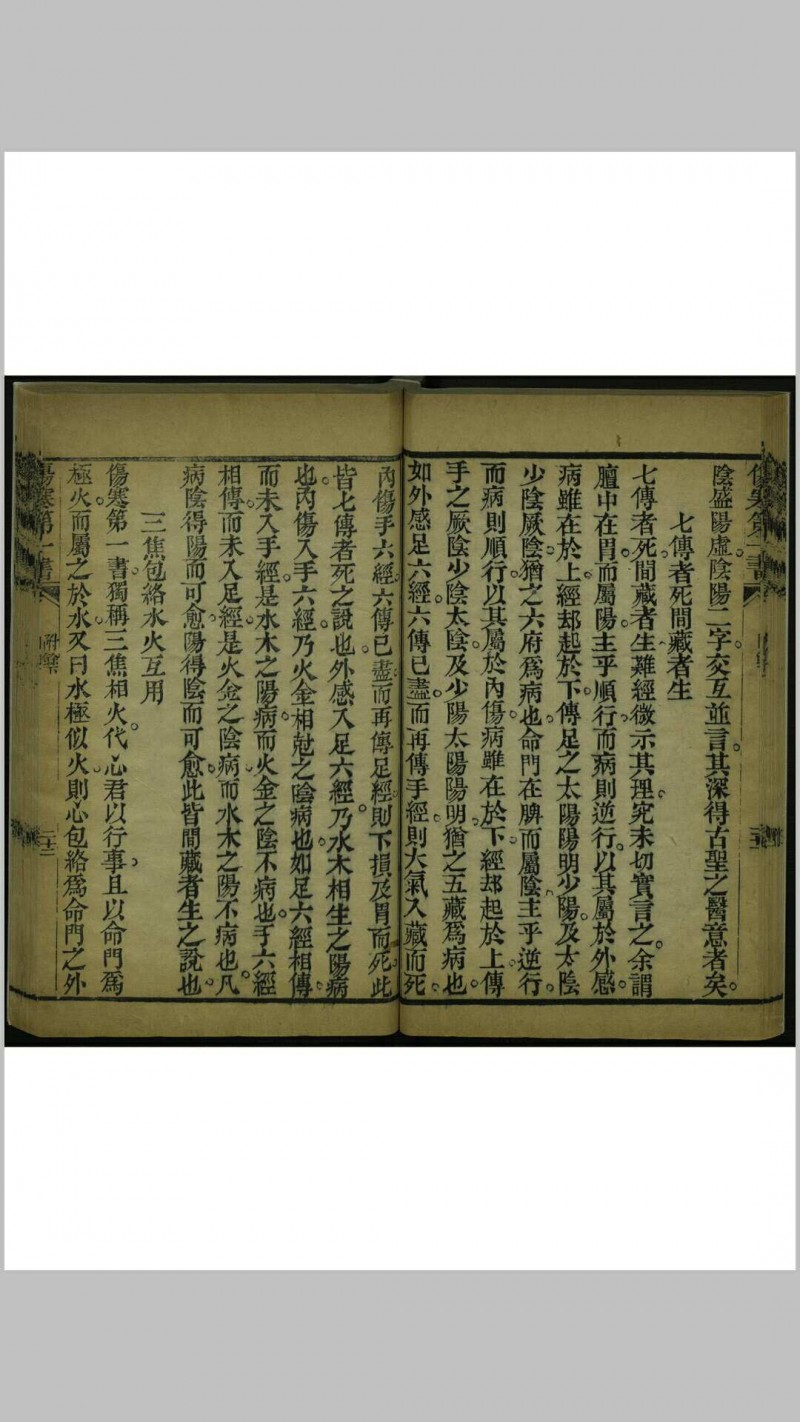 陰盛陽虛。陰陽二字。交互並言。其深得古聖之醫意者矣。
七傳者死間藏者生
七傳者死。間藏者生。難經微示其理。究未切實言之。余謂
膻中在胃。而屬陽。主乎順行。而病則逆行。以其屬於外感。
病雖在於上。經却起於下。傳足之太陽陽明少陽。及太陰
少陰厥陰。猶之六府為病也。命門在脾。而屬陰。主乎逆行。
而病則順行。以其屬於內傷。病雖在於下。經却起於上。傳
手之厥陰少陰太陰。及少陽太陽陽明。猶之五藏為病也。
如外感足六經。六傳已盡。而再傳手經。則大氣入藏而死。
內傷手六經。六傳已盡。而再傳足經。則下損及胃而死。此
皆七傳者死之說也。外感入足六經。乃水木相生之陽病
也。內傷入手六經。乃火金相尅之陰病也。如足六經相傳。
而未入手經。是水木之陽病。而火金之陰不病也。手六經
相傳。而未入足經。是火金之陰病。而水木之陽不病也。凡
病陰得陽而可愈。陽得陰而可愈。此皆間藏者生之說也。
三焦包絡水火互用
傷寒第一書。獨稱三焦相火。代心君以行事。且以命門為
極火。而屬之於水。又曰水極似火。則心包絡為命門之外
傷寒第一書
附餘
二十三